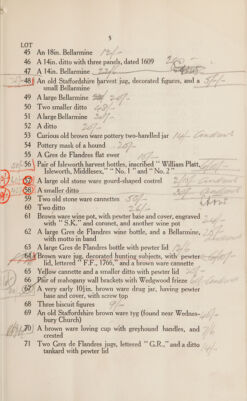 5
LOT
45 An 18in. Bellarmine
46 A 14in. ditto with three panels, dated 1609
47 A 14in. Bellarmine
48 An old Staffordshire harvest jug, decorated figures, and a
small Bellarmine
49 A large Bellarmine
50 Two smaller ditto
51 A large Bellarmine
52 A ditto
53 Curious old brown ware pottery two-handled jar
54 Pottery mask of a hound
55 A Gres de Flandres flat ewer
56 Pair of Isleworth harvest bottles, inscribed " William Platt,
Isleworth, Middlesex," " No. 1 " and " No. 2 "
57 A large old stone ware gourd-shaped costrel
58 A smaller ditto
59 Two old stone ware cannettes
60 Two ditto
61 Brown ware wine pot, with pewter base and cover, engraved
with " S.K." and coronet, and another wine pot
62 A large Gres de Flandres wine bottle, and a Bellarmine,
with motto in band
63 A large Gres de Flandres bottle with pewter lid
64 Brown ware jug, decorated hunting subjects, with pewter
lid, lettered " F.F., 1766," and a brown ware cannette
65 Yellow cannette and a smaller ditto with pewter lid
66 Pair of mahogany wall brackets with Wedgwood frieze
67 A very early 10½in. brown ware drug jar, having pewter
base and cover, with screw top
68 Three biscuit figures
69 An old Staffordshire brown ware tyg (found near Wednes-
bury Church)
70 A brown ware loving cup with greyhound handles, and
crested
71 Two Gres de Flandres jugs, lettered " G.R.," and a ditto
tankard with pewter lid